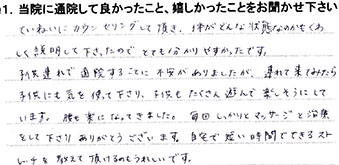 1. 当院に通院して良かったこと、嬉しかったことをお聞かせ下さい
ていねいにカウンセリングして頂き、体がどんな状態なのかもくわ
しく説明して下さったのでとても分かりやすかったです。
子供連れで通院することに不安がありましたが、連れて来てみたら
子供にも気を使って下さり、子供もたくさん遊んで楽しそうにして
います。腰も楽になってきました。毎回しっかりとマッサージと治療
をして下さりありがとうございます。自宅で短い時間でできるスト
レッチを教えて頂けるのもうれしいです。